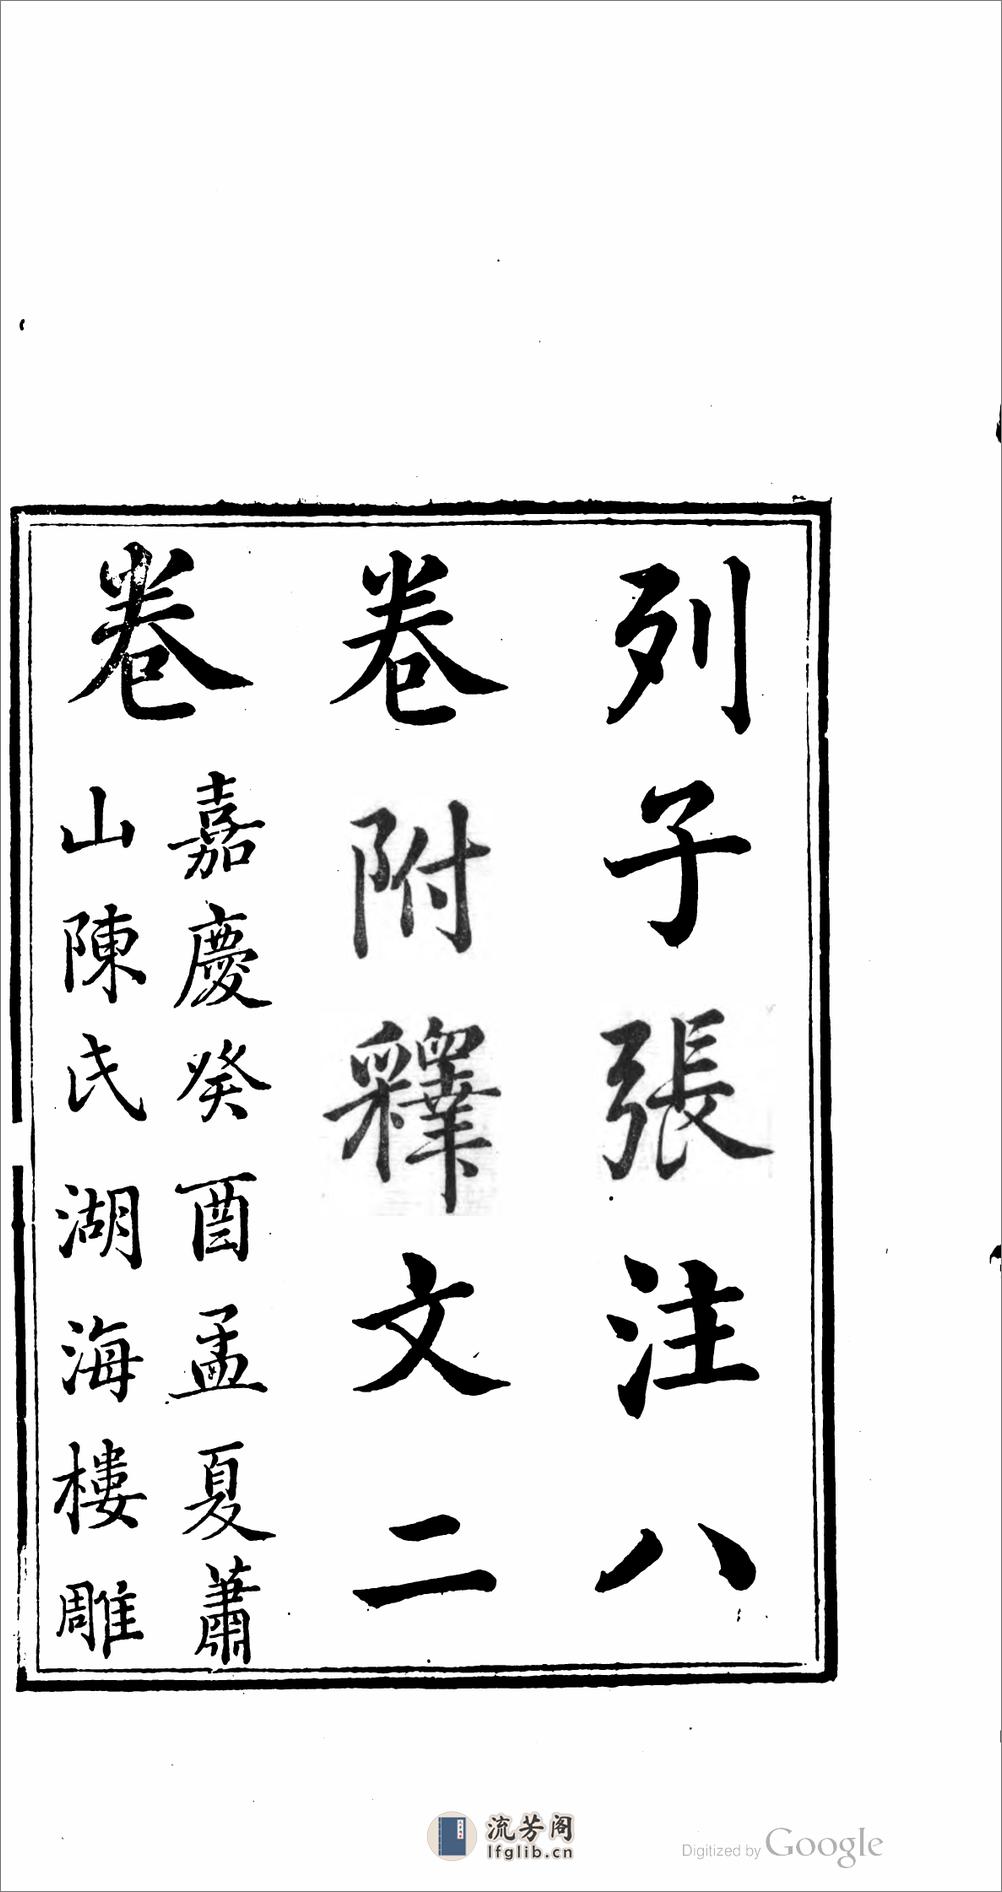 列子張注八
卷附釋文二
卷
嘉慶癸酉孟夏蕭
山陳氏湖海樓雕
流芳阁
lfglib.cn
Digitized by Google